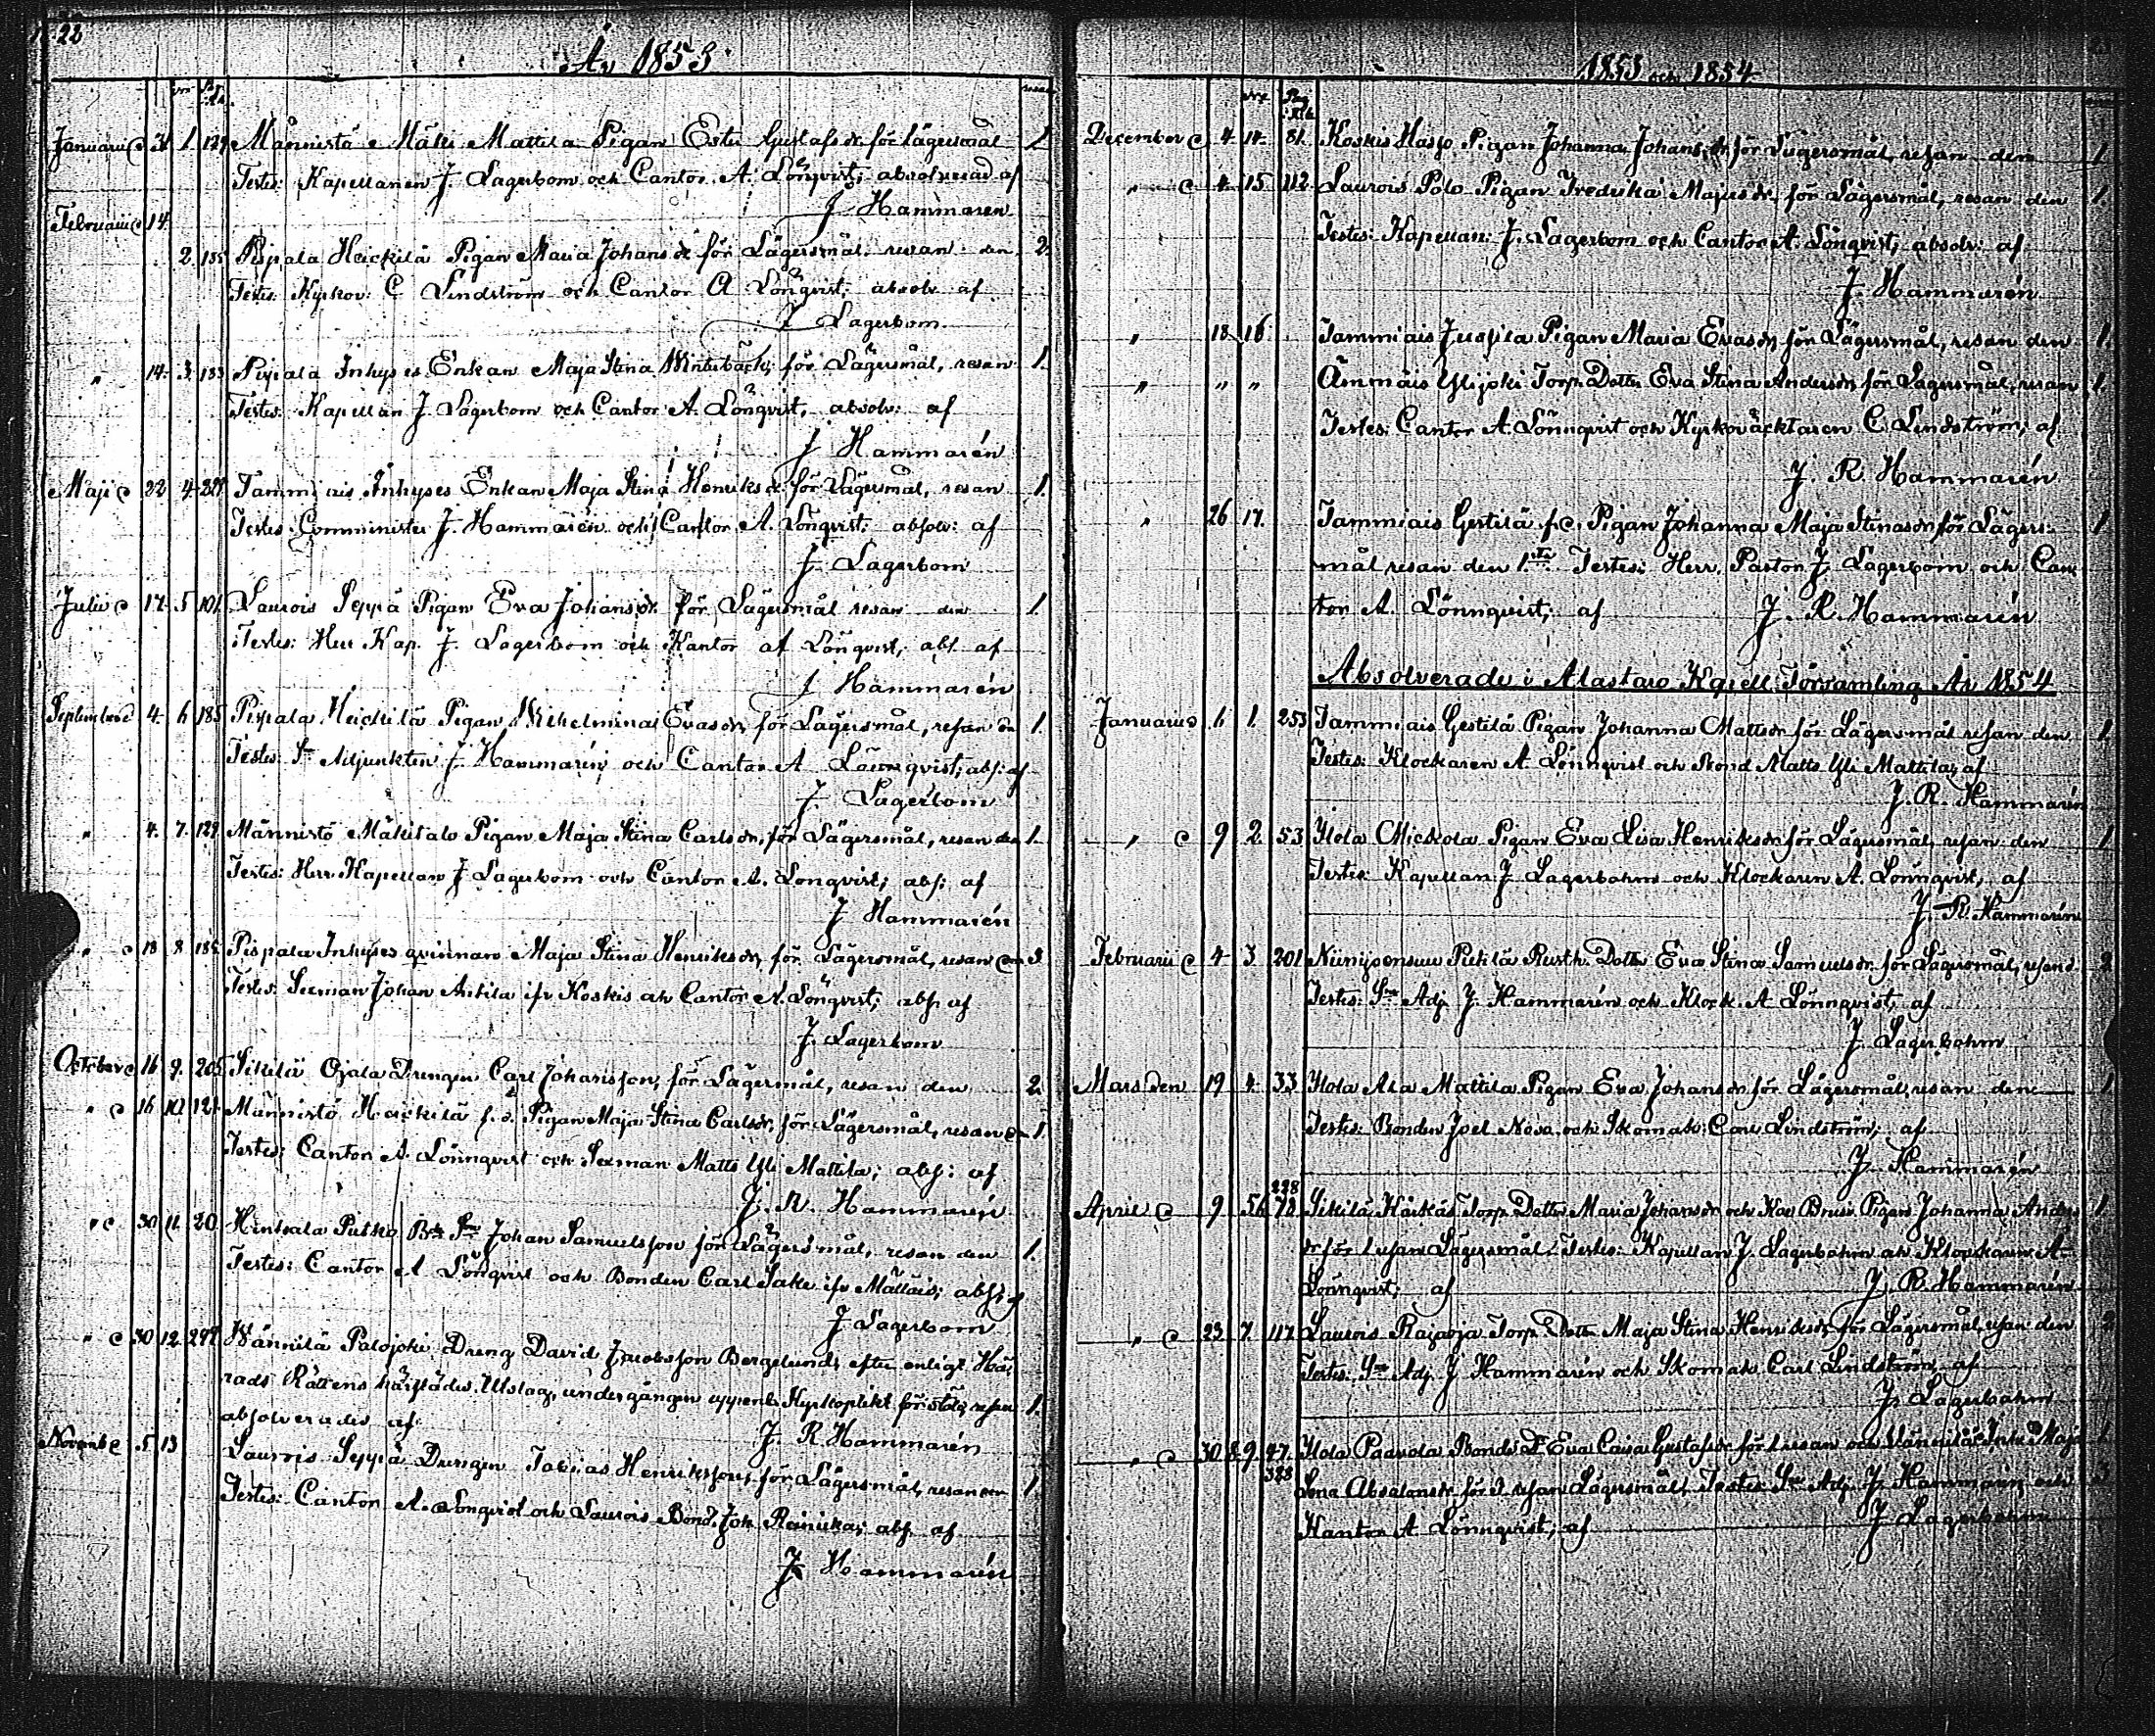 22
År 1853.
Januarii d. 31 1. 129 Männistö Mäki Mattila Pigan Ester Gustafsdr. för lägersmål 1.
Testes: Kapellanen J. Lagerbom och Cantor A. Lönqvist; absolverad af
J Hammaren
Februarii d 14
2. 185 Pispala Heickilä Pigan Maria Johansdr för Lägersmål resan den 2.
Testes: Kyrkov: C Lindström och Cantor A Lönqvist; absolv af
J Lagerbom
" 14. 3. 183 Pispala Inhyses Enkan Maja Stina Winterbäck, för Lägersmål, resan 1.
Testes: Kapellan J Lagerbom och Cantor A. Lönqvist, absolv: af
J Hammarén
Maji d 22 4. Tammiais Inhyses Enkan Maja Stina Henriksdr för Lägersmål, resan 1.
Testes: Comminister J. Hammarén och Cantor A. Lönqvist; absolv: af
J Lagerbom
Julii d 17. 5. 101. Laurois Seppä Pigan Eva Johansdr. för Lägersmål resan den 1.
Testes: Herr Kap. J. Lagerbom och Kantor A Lönqvist, abs. af
J Hammarén
September d 4. 6 185 Pispala Heickilä Pigan Wilhelmina Evasdr, för Lägersmål, resan dn 1.
Testes: Sn Adjunkten J. Hammarén och Cantor A Lönnqvist; abs: af
J. Lagerbom
" 4. 7. 129. Männistö Mäkitalo Pigan Maja Stina Carlsdr, för Lägersmål, resan den 1.
Testes: Herr Kapellan J Lagerbom och Cantor A. Lönqvist; abs: af
J Hammarén
" d 18 8. 185. Pispala Inhyses qvinnan Maja Stina Henriksdr, för Lägersmål, resan den 3
Testes: Sexman Johan Anttila ifr Koskis och Cantor A. Lönqvist; abs. af
J. Lagerbom
October d 16 9. 205 Sikilä Ojala Drengen Carl Johansson, för Lägersmål, resan den 2
" d 16 10. 121. Männistö Heickilä f.d. Pigan Maja Stina Carlsdr, för Lägersmål, resan dn 1.
Testes: Cantor A. Lönnqvist och Sexman Matts Yli Mattila; abs: af
J. R. Hammarén
" d 30 11. 20. Hinkala Putko Bde Sn Johan Samuelsson för Lägersmål, resan den 1.
Testes: Cantor A Lönqvist och Bonden Carl Sake ifr Mältäis; abs: af
J Lagerbom
" d 30 12. Wännilä Palojoki Dreng David Jacobsson Berglund, efter enligt Hä-
rads Rättens härstädes Utslag, undergången uppenb. Kyrkoplikt för stöld, resan 1.
absolverades af J. R Hammarén
Novemb d 5 13 Laurois Seppä Drengen Tobias Henriksson, för Lägersmål, resan den 1.
Testes: Cantor A. Lönqvist och Laurois Bond. Joh Rainikka; abs. af
J. Hammarén
1853 och 1854
December d 4 14. 81. Koskis Hasso Pigan Johanna Johansdr för Lägersmål, resan den 1
" d 4. 15 112. Laurois Polo Pigan Fredrika Majasdr, för Lägersmål, resan den 1.
Testes: Kapellan: J. Lagerbom och Cantor A. Lönqvist; absolv: af
J. Hammarén
" 18 16 Tammiais Jussila Pigan Maria Evasdr, för Lägersmål, resan den 1.
" " " Ämmäis Ylijoki Torp. Dottr Eva Stina Andersdr, för Lägersmål, resan 1.
Testes: Cantor A. Lönnqvist och Kyrkoväcktaren C Lindström; af
J. R. Hammarén
" 26 17. Tammiais Gestilä f.d. Pigan Johanna Maja Stinasdr för Lägers- 1
mål resan den 1sta. Testes: Herr Pastor J. Lagerbom och Can
tor A. Lönnqvist; af J. R. Hammarén
Absolverade i Alastaro Kapell Församling År 1854
Januarius 6 1. 253 Tammiais Gestilä Pigan Johanna Mattsdr för Lägersmål resan den 1.
Testes: Klockaren A Lönnqvist och Bond Matts Yli Mattila; af
J. R. Hammarén
" d 9 2. 53 Ylola Mickola Pigan Eva Lisa Henriksdr, för Lägersmål, resan den 1
Testes: Kapellan J Lagerbohm och Klockaren A. Lönnqvist, af
J. R. Hammarén
Februarii d 4 3 201 Niinijoensuu Pickilä Rusth. Dottr Eva Stina Samuelsdr. för Lägersmål, resan d. 2
Testes: Sne Adj J. Hammarén och Klock. A Lönnqvist; af
J. Lagerbohm
Mars den 19 4. 33 Ylola Ala Mattila Pigan Eva Johansdr för Lägersmål, resan den 1
Testes: Bonden Joel Nova och Skomak: Carl Lindström; af
J. Hammarén
228
April d 9 5 6 72 Sikilä Käikäs Torp. Dottr Maria Johansdr och Koe Brusi Pigan Johanna Anders 1
dr för 1 resan Lägersmål. Testes: Kapellan J. Lagerbohm och Klockaren A.
Lönnqvist; af J. R. Hammarén
" d 23 7. 117 Laurois Rajaoja Torp. Dottr Maja Stina Henriksdr, för Lägersmål resan den 2
Testes: Sne Adj. J Hammarén och Skomak Carl Lindström, af
J. Lagerbohm
" d 30 8. 9. 47. Ylola Paavola Bonde D. Eva Caisa Gustafsdr för 1 resan och Wännilä Inh. Maja 1
328 Lena Absalonsdr för 3 resan Lägersmål, Testes: Sne Adj. J. Hammarén och 3
Kantor A Lönnqvist; af J Lagerbohm